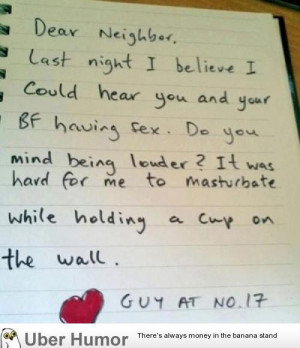 Dear Neighbor,
Last night I believe I
Could hear you and your
BF having sex. Do you
mind being louder? It was
hard for me to masturbate
while holding a cup on
the wall.
GUY AT NO.17
Uber Humor
There's always money in the banana stand